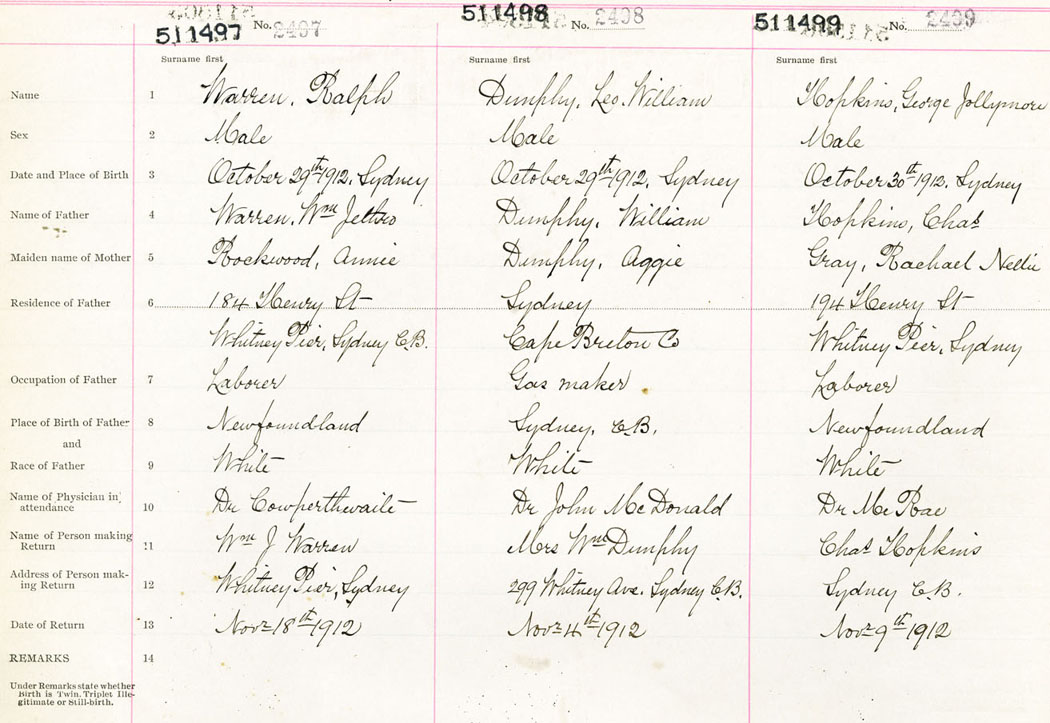 511497 No. 2497 511498 No. 2498 511499 No. 2499
Surname first Surname first Surname first
Name 1 Warren, Ralph Dunphy, Leo William Hopkins, George Jollymore
Sex 2 Male Male Male
Date and Place of Birth 3 October 29th 1912, Sydney October 29th 1912, Sydney October 30th 1912, Sydney
Name of Father 4 Warren, Wm Jethro Dunphy, William Hopkins, Chas
Maiden name of Mother 5 Rockwood, Annie Dunphy, Aggie Gray, Rachael Nellie
Residence of Father 6 184 Henry St Sydney 194 Henry St
Whitney Pier, Sydney C.B. Cape Breton Co Whitney Pier, Sydney
Occupation of Father 7 Laborer Gas maker Laborer
Place of Birth of Father 8 Newfoundland Sydney, C.B. Newfoundland
and
Race of Father 9 White White White
Name of Physician in
attendance 10 Dr Cowperthwaite Dr John McDonald Dr McRae
Name of Person making
Return 11 Wm J Warren Mrs Wm Dunphy Chas Hopkins
Address of Person mak-
ing Return 12 Whitney Pier, Sydney 299 Whitney Ave. Sydney C.B. Sydney C.B.
Date of Return 13 Novr 18th 1912 Novr 4th 1912 Novr 9th 1912
REMARKS 14
Under Remarks state whether
Birth is Twin, Triplet Ille-
gitimate or Still-birth.